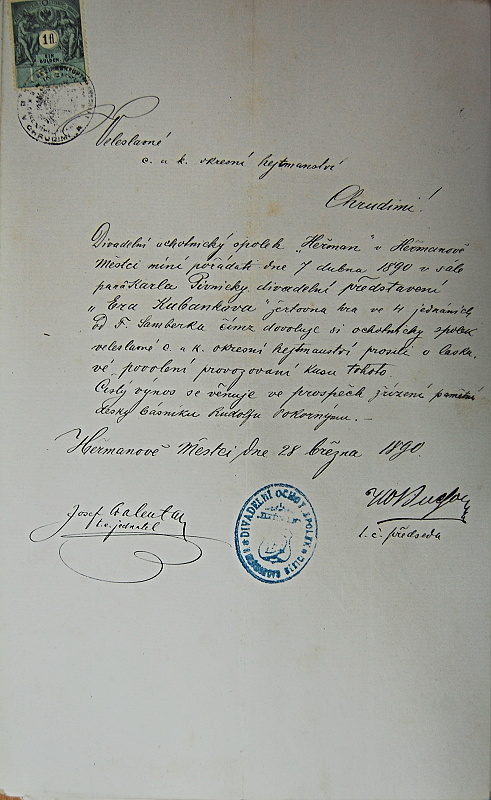 1 fl
EIN GULDEN
V CHRUDIMI
Veleslavné
c. a k. okresní hejtmanství
Chrudimi!
Divadelní ochotnický spolek „Heřman" v Heřmanově
Městci míní pořádati dne 7 dubna 1890 v sále
pana Karla Pivnicky divadelní představení
„Eva Kubankova" žertovna hra ve 4 jednáních
od F. Samberka čímž dovoluje si ochotnický spolek
veleslavné c. a k. okresní hejtmanství prositi o laska-
vé povolení provozování kusu tohoto.
Čistý výnos se věnuje ve prospěch zřízení památní
desky básníku Rudolfu Pokornýmu. —
Heřmanově Městci dne 28 března 1890.
Josef
t. č. jednatel
DIVADELNÍ OCHOT. SPOLEK
t. č. předseda